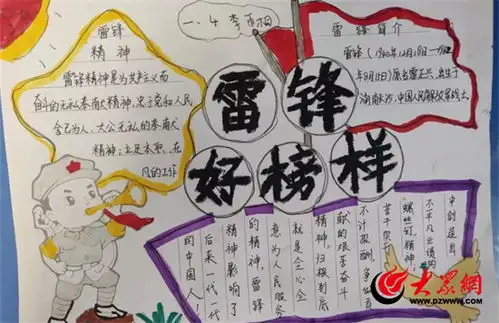 一.4 李
雷锋
精神
雷锋精神是为共产主义而
奋斗的无私奉献精神,忠于党和人民
舍己为人、大公无私的奉献
精神;立足本职、在
凡的工作
雷锋简介
雷锋(1940年12月18日-1962
年8月15日)原名雷正兴,出生于
湖南长沙,中国人民解放军战士
雷锋
好榜样
中创造出
不平凡业绩的
"螺丝钉精神;
苦实干
不计报酬,多
献的艰苦奋斗
精神,归根到底
就是全心全
意为人民服务
的精神,雷锋
精神影响了
后来一代一代
的中国人!
大众網
www.dzwww.com